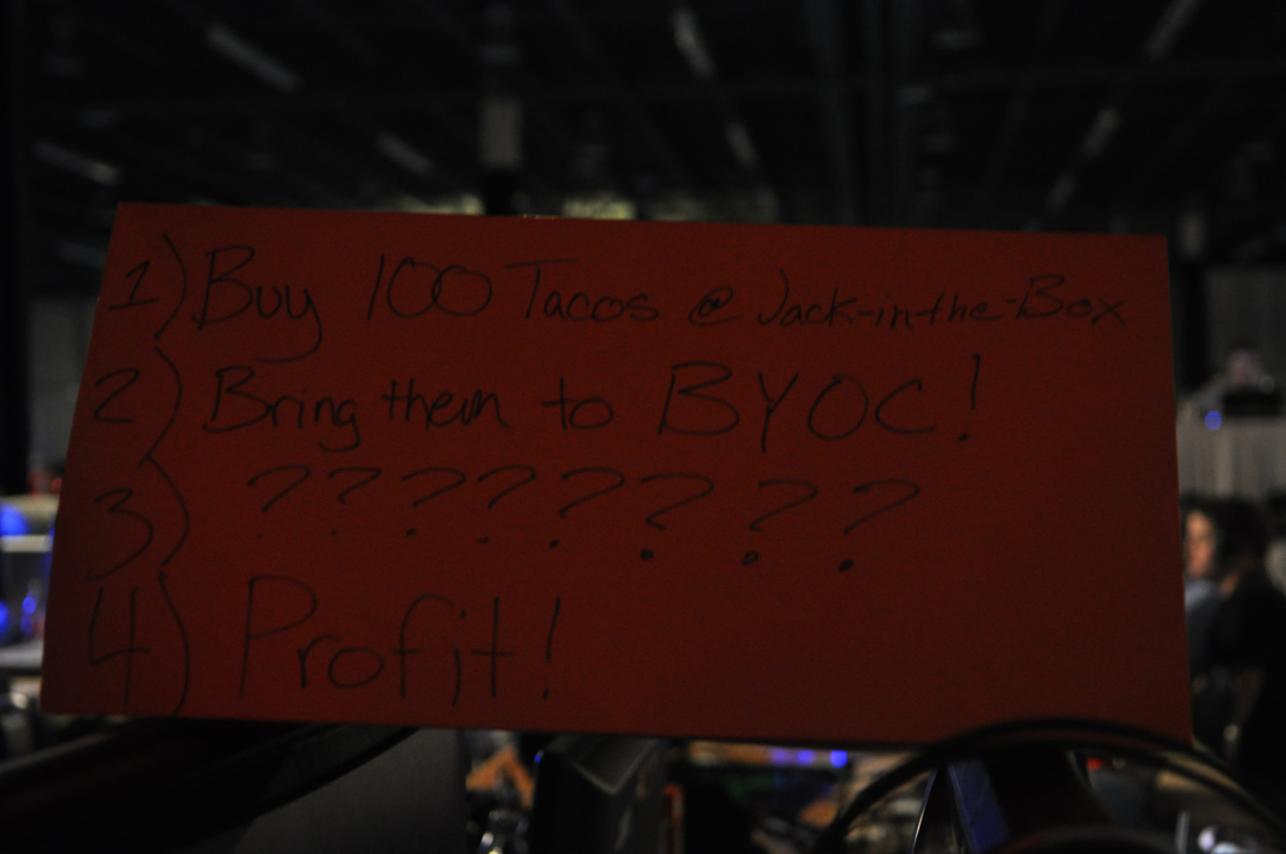 1) Buy 100 Tacos @ Jack-in-the-Box
2) Bring them to BYOC!
3) ????????
4) Profit!